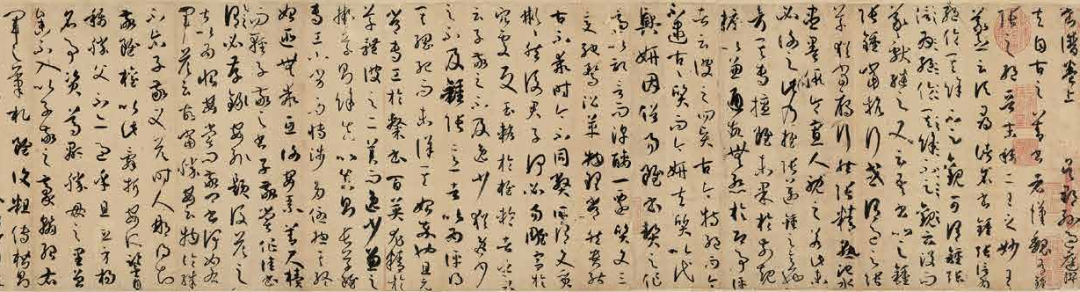 書譜卷上 吳郡孫過庭撰
夫自古之善書者漢魏有鍾
張之絕晉末稱二王之妙王
羲之云頃尋諸名書鍾張信
為絕倫其餘不足觀可謂鍾張云沒而
羲獻繼之又云吾書比之鍾
張鍾當抗行或謂過之張
草猶當鴈行然張精熟池水
盡墨假令寡人耽之若此未
必謝之此乃推張邁鍾之意
也考其專擅雖未果於前規
摭以兼通故無慚於即事評
者云彼之四賢古今特絕而今
不逮古古質而今妍夫質以代
興妍因俗易雖書契之作
適以記言而淳醨一遷質文三
變馳騖沿革物理常然貴能
古不乖時今不同弊所謂文質
彬彬然後君子何必易雕宮於
穴處反玉輅於椎輪者乎又
云子敬之不及逸少猶逸少
之不及鍾張意者以為評得
其綱紀而未詳其始卒也且元
常專工於隸書百英尤精於
草體彼之二美而逸少兼之
擬草則餘真比真則長草雖
專工小劣而博涉多優摠其終
始匪無乖互謝安素善尺櫝
而輕子敬之書子敬嘗作佳書
與之謂必存錄安輒題後答之
甚以為恨安嘗問敬卿書何如右
軍答云故當勝安云物論殊
不爾子敬又答時人那得知
敬雖權以此辭折安所鑒自
稱勝父不亦過乎且立身揚
名事資尊顯勝母之里曾
參不入以子敬之豪翰紹右
軍之筆札雖復粗傳楷則